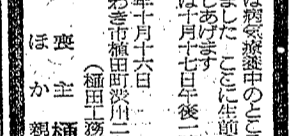 は病気療養中のとこ
ました ここに生前
しあげます
は十月十七日午後二
年十月十六日
わき市植田町渋川二
(植田工務
喪主 植
ほか親